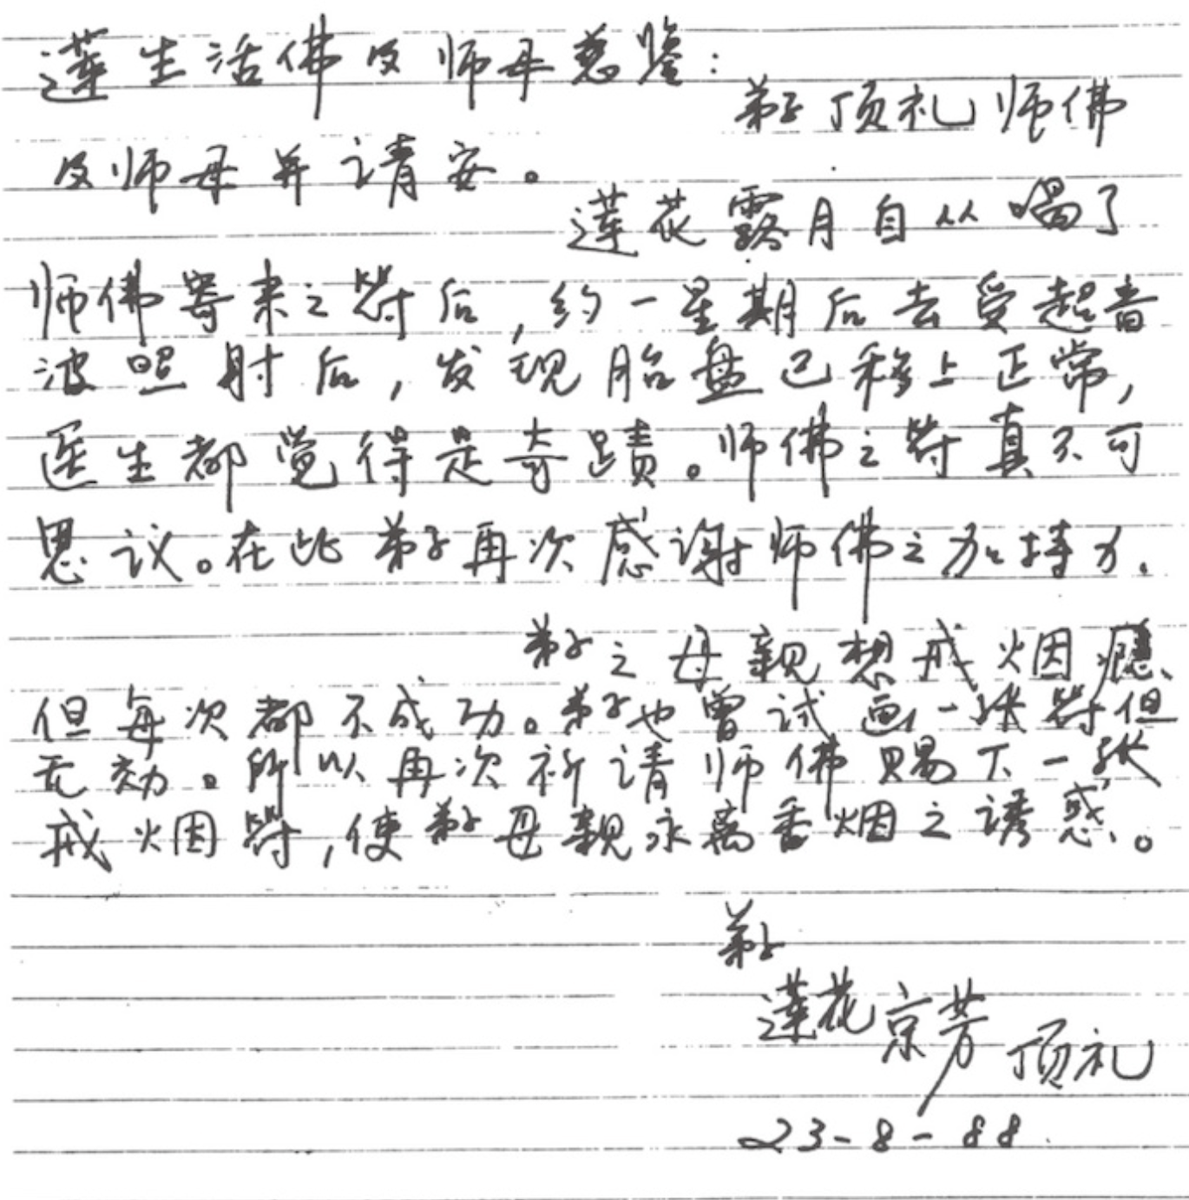 莲生活佛及师母慈鉴：
弟子顶礼师佛
及师母并请安。
莲花露月自从喝了
师佛寄来之符后，约一星期后去受超音
波照射后，发现胎盘已移上正常，
医生都觉得是奇蹟。师佛之符真不可
思议。在此弟子再次感谢师佛之加持力.
弟子之母亲想戒烟瘾、
但每次都不成功。弟子也曾试画一张符但
无効。所以再次祈请师佛赐下一张
戒烟符，使弟子母亲永离香烟之诱惑、。
弟子
莲花京芳顶礼
23-8-88.